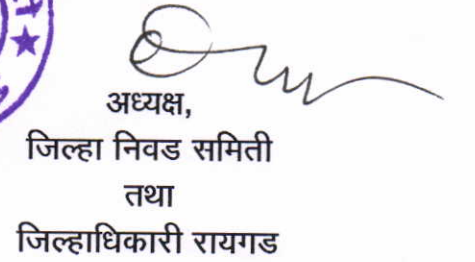 अध्यक्ष,
जिल्हा निवड समिती
तथा
जिल्हाधिकारी रायगड